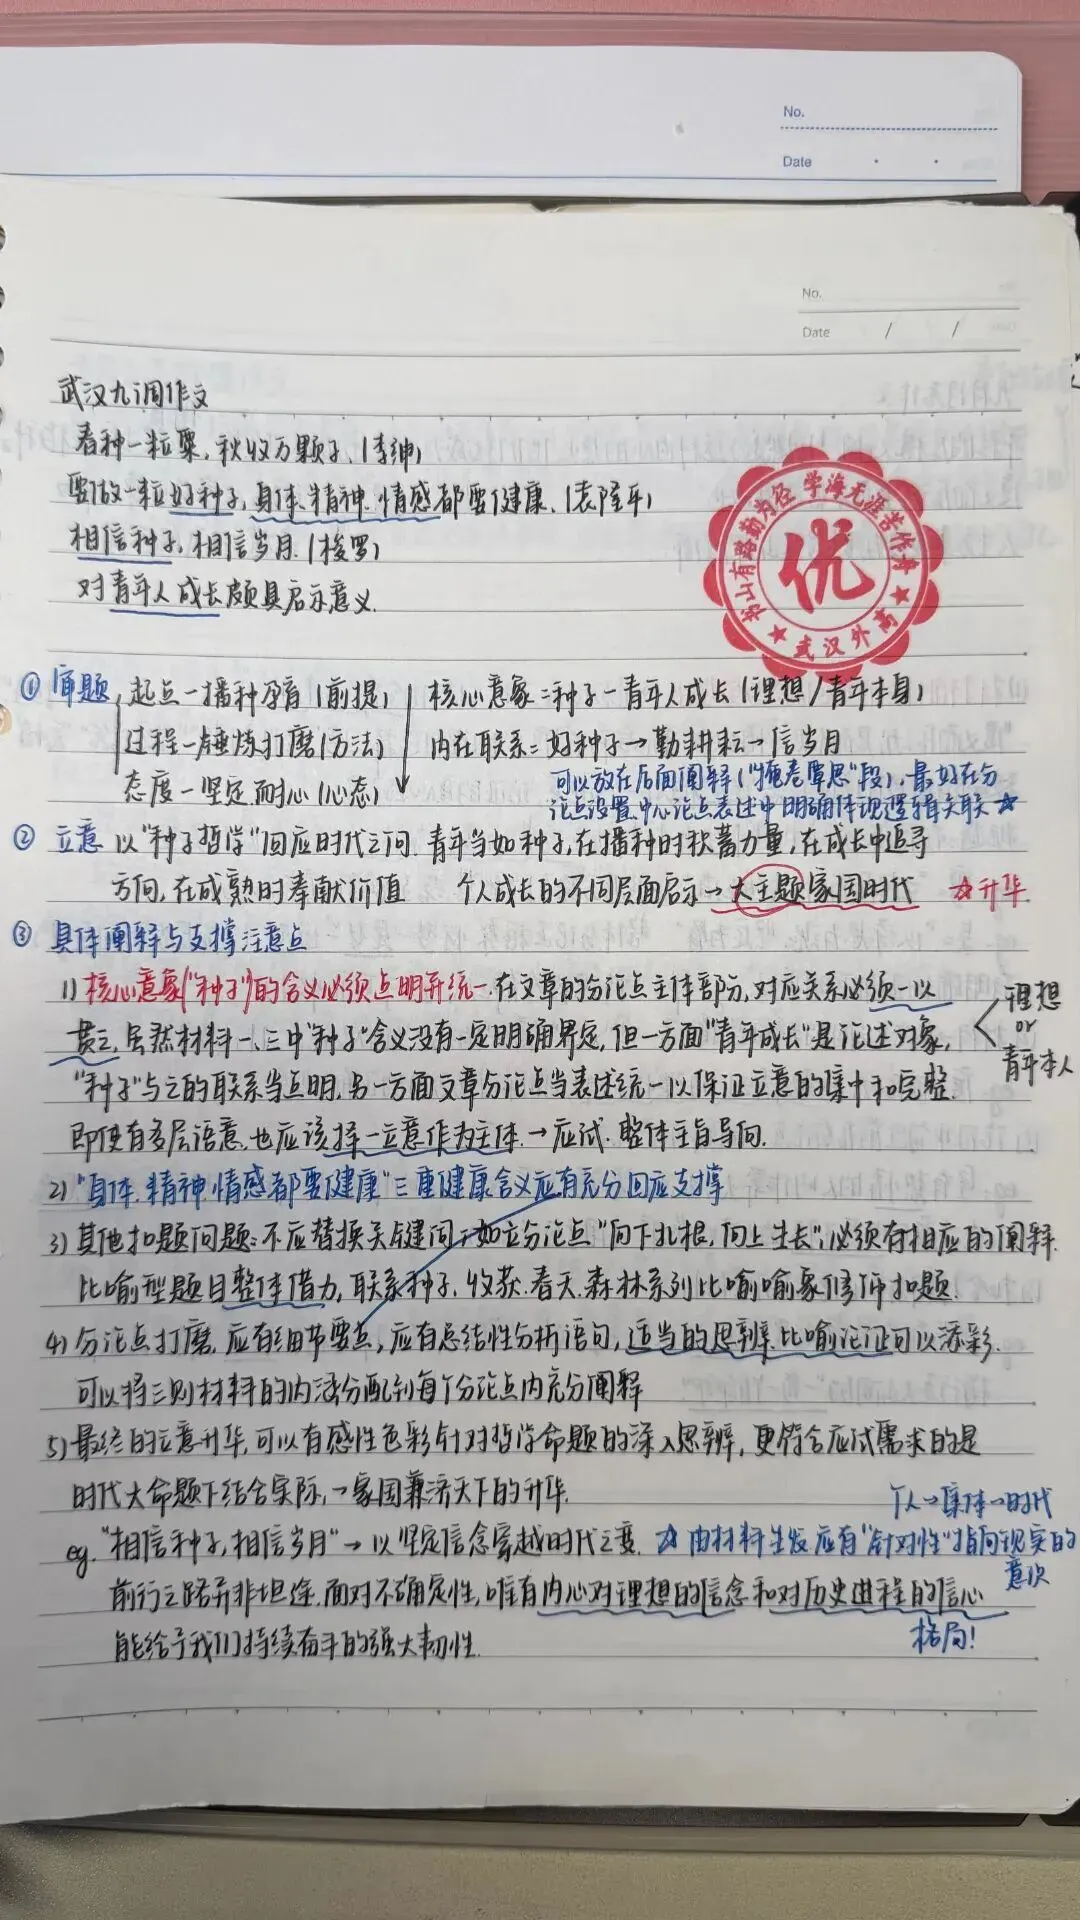 No.
Date
No.
Date / /
武汉九调作文
春种一粒粟，秋收万颗子。（李绅）
要做一粒好种子，身体、精神、情感都要健康。（袁隆平）
相信种子，相信岁月。（梭罗）
对青年人成长颇具启示意义。
书山有路勤为径 学海无涯苦作舟
优
武汉外高
① 审题 起点—播种孕育（前提） 核心意象=种子—青年人成长（理想/青年本身）
过程—锤炼打磨（方法） 内在联系=好种子→勤耕耘→信岁月
态度—坚定、耐心（心态） 可以放在后面阐释（"掩卷覃思"段），最好在分
论点设置、中心论点表述中明确体现逻辑关联☆
② 立意 以"种子哲学"回应时代之问. 青年当如种子，在播种时积蓄力量，在成长中追寻
方向，在成熟时奉献价值 个人成长的不同层面启示→大主题家国时代 ☆升华
③ 具体阐释与支撑注意点
1）核心意象（"种子"）的含义必须点明并统一. 在文章的分论点主体部分，对应关系必须一以 理想
贯之. 虽然材料一、三中"种子"含义没有一定明确界定，但一方面"青年成长"是论述对象， or
"种子"与之的联系当点明，另一方面文章分论点当表述统一以保证立意的集中和完整. 青年本人
即使有多层语意，也应该择一立意作为主体.→应试. 整体主旨导向.
2）"身体、精神、情感都要健康"三重健康含义应有充分回应支撑
3）其他扣题问题：不应替换关键词；如立分论点"向下扎根，向上生长"，必须有相应的阐释.
比喻型题目整体借力，联系种子、收获、春天、森林系列比喻喻象修饰扣题.
4）分论点打磨. 应有细节要点，应有总结性分析语句，适当的思辨、比喻论证可以添彩.
可以将三则材料的内涵分配到每个分论点内充分阐释
5）最终的立意升华，可以有感性色彩针对哲学命题的深入思辨，更符合应试需求的是
时代大命题下结合实际，→家国兼济天下的升华. 个人→集体→时代
eg. "相信种子，相信岁月"→以坚定信念穿越时代之变. ☆由材料生发应有"针对性"指向现实的
意识
前行之路并非坦途. 面对不确定性，唯有内心对理想的信念和对历史进程的信心
能给予我们持续奋斗的强大韧性. 格局！